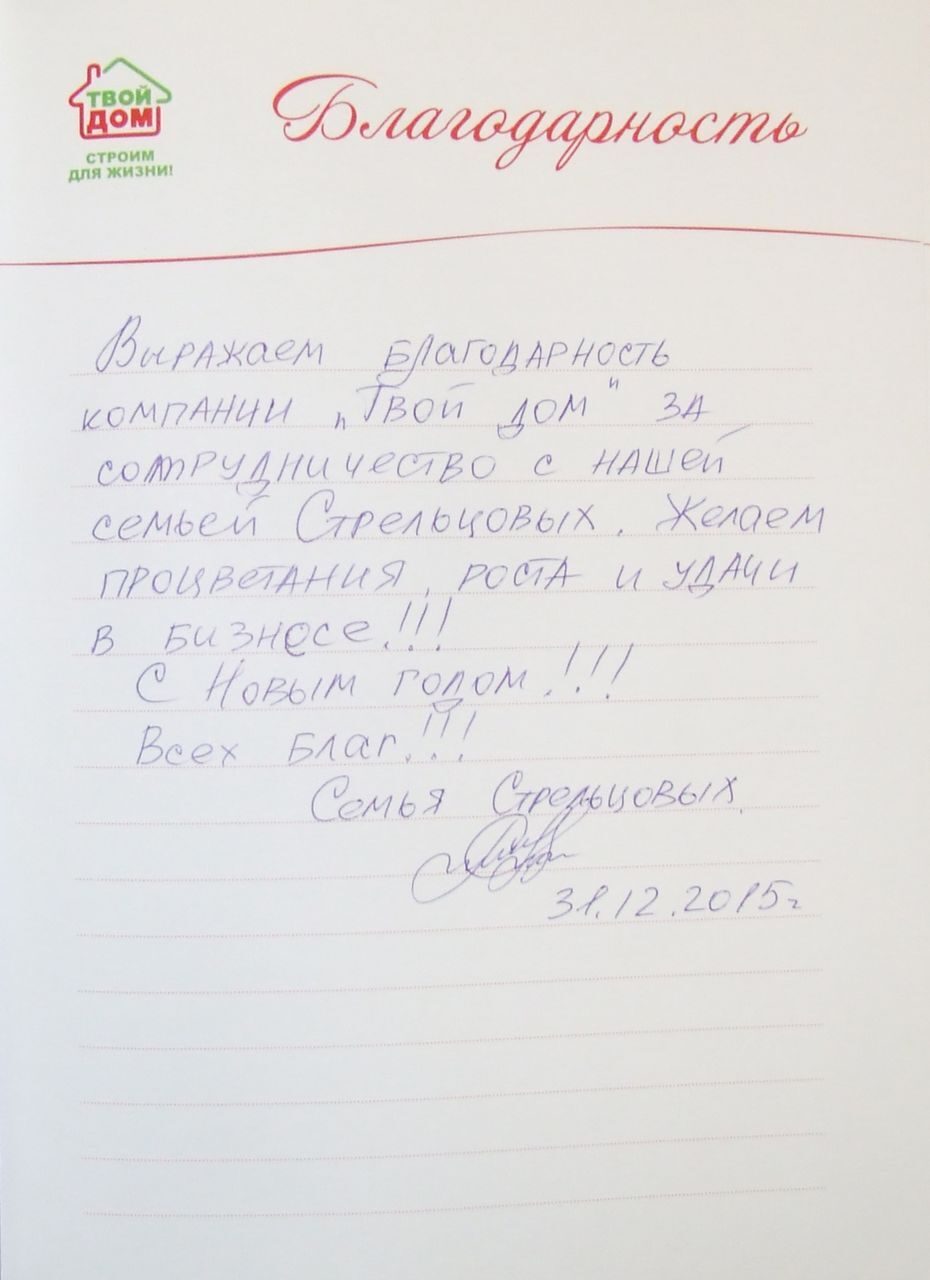 ТВОЙ
ДОМ
СТРОИМ
ДЛЯ ЖИЗНИ!
Благодарность
Выражаем благодарность
компании „Твой дом" за
сотрудничество с нашей
семьей Стрельцовых. Желаем
процветания, роста и удачи
в бизнесе!!!
С Новым годом!!!
Всех благ!!!
Семья Стрельцовых.
31.12.2015г